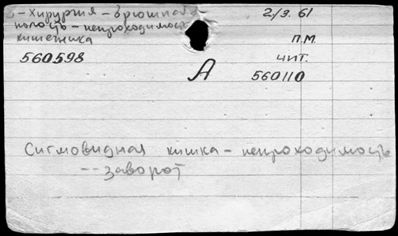 Хирургия - Брюшная 2/3. 61
полость - непроходимость
кишечника П.М.
560598 чит.
А 560110
Сигмовидная кишка - непроходимость
-- заворот